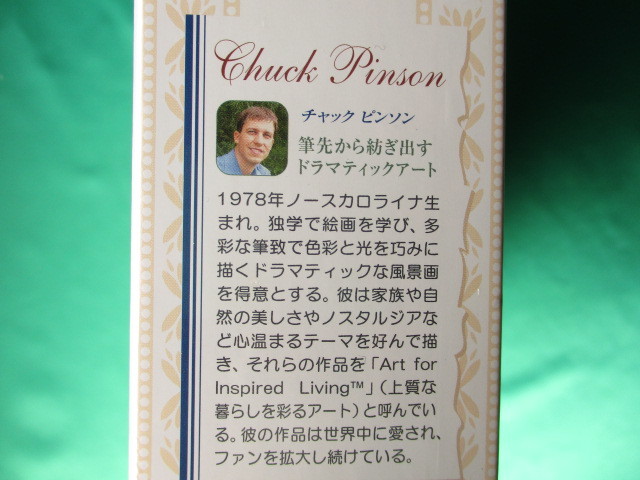 Chuck Pinson
チャック ピンソン
筆先から紡ぎ出す
ドラマティックアート
1978年ノースカロライナ生
まれ。独学で絵画を学び、多
彩な筆致で色彩と光を巧みに
描くドラマティックな風景画
を得意とする。彼は家族や自
然の美しさやノスタルジアな
ど心温まるテーマを好んで描
き、それらの作品を「Art for
Inspired Living™」(上質な
暮らしを彩るアート)と呼んでい
る。彼の作品は世界中に愛され、
ファンを拡大し続けている。